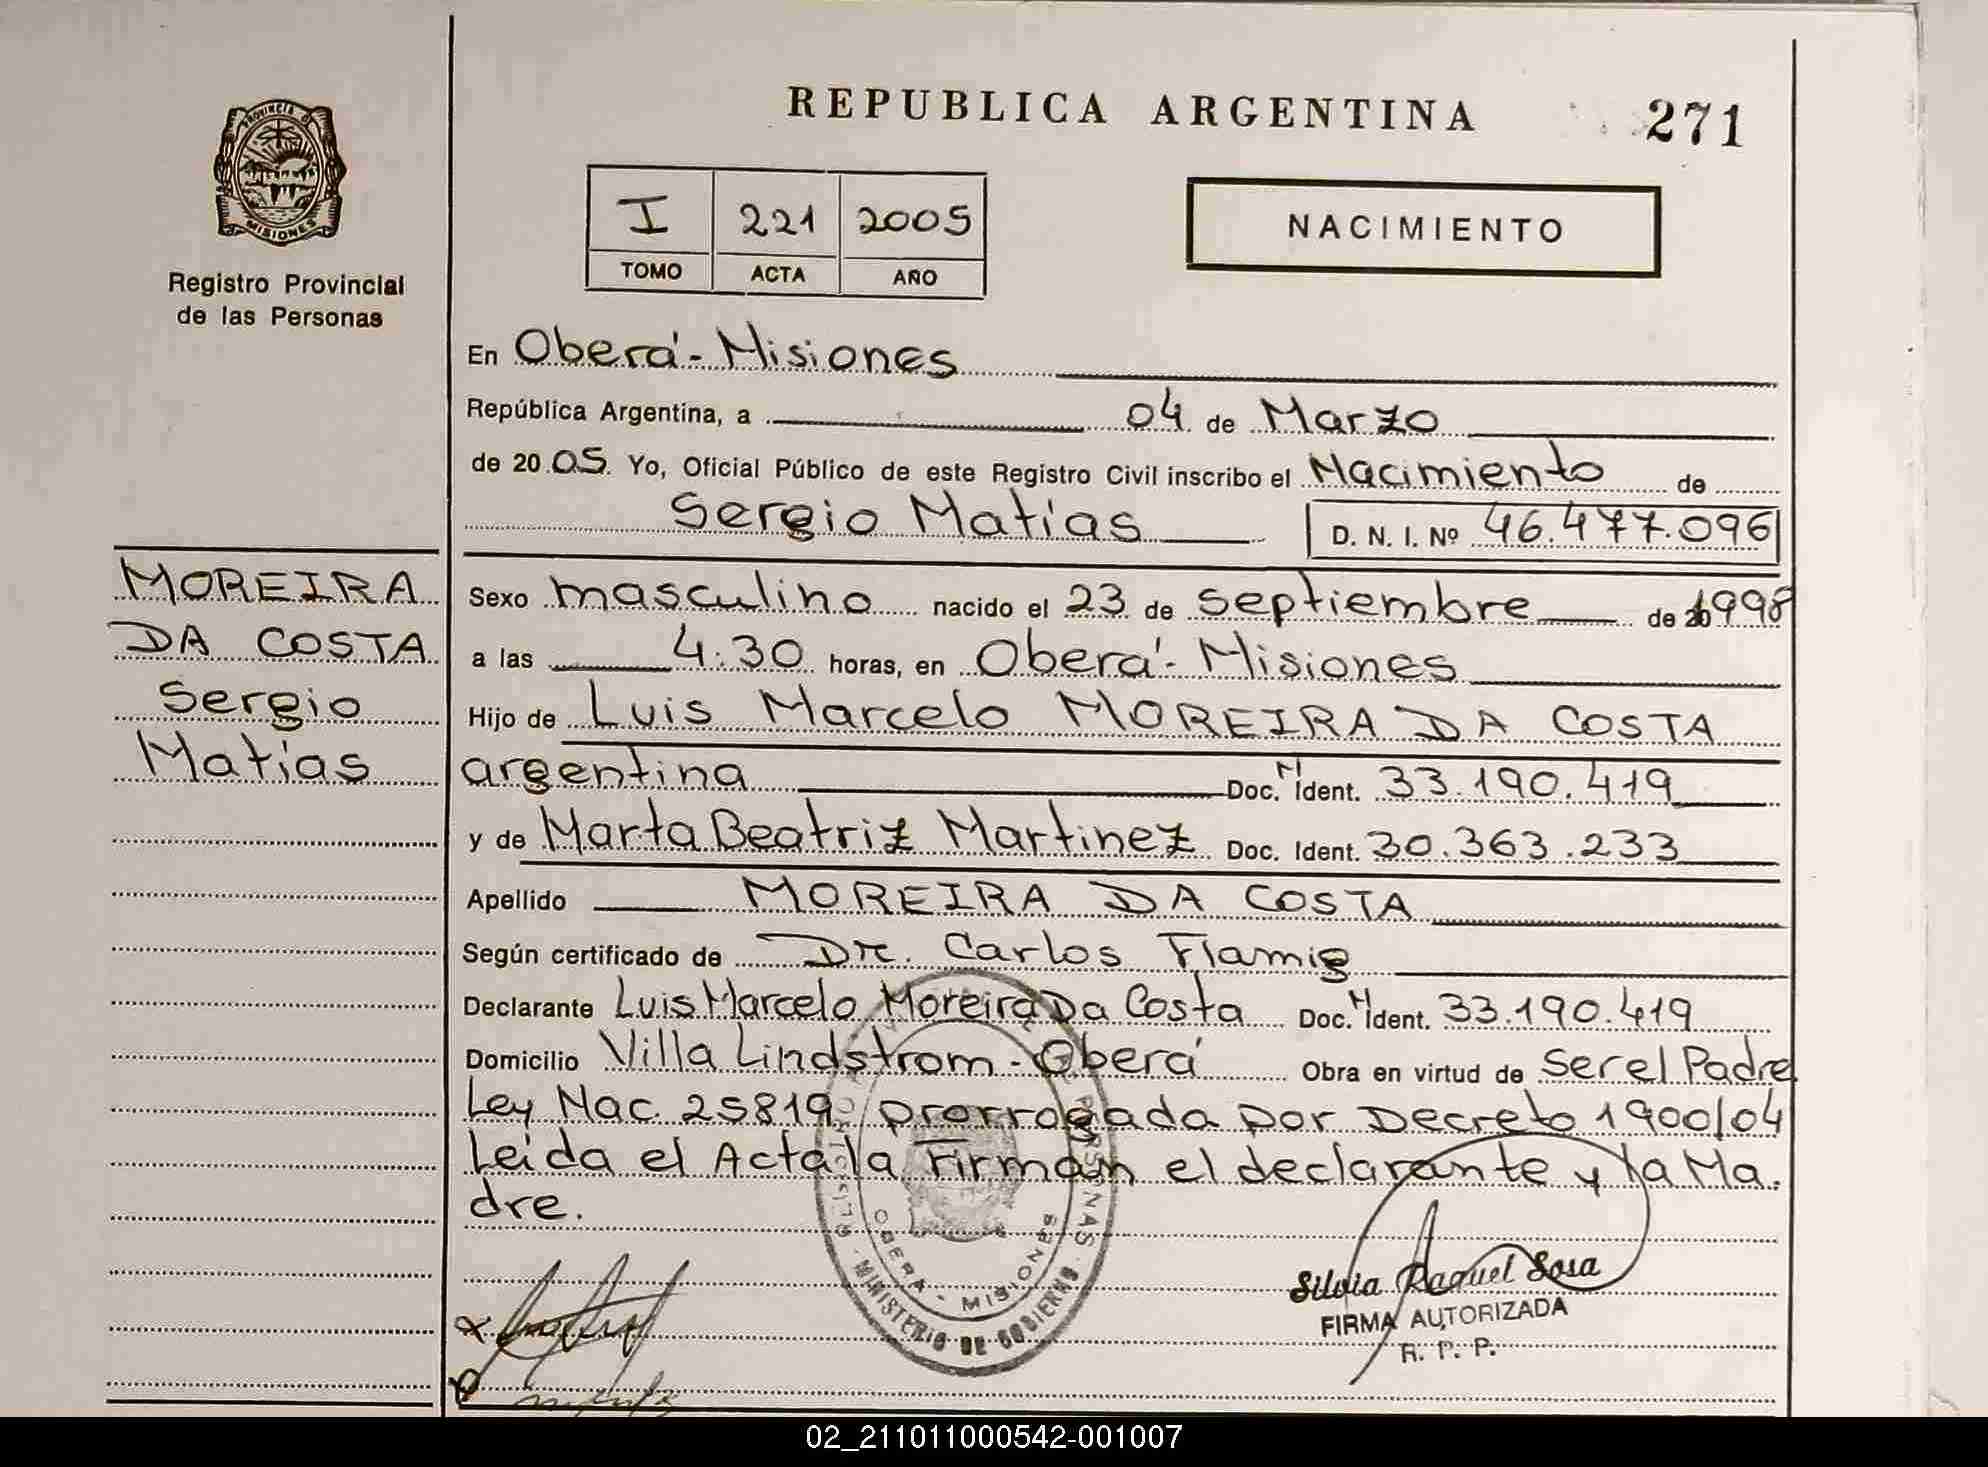 REPUBLICA ARGENTINA
271
PROVINCIA D
MISIONES
Registro Provincial
de las Personas
I 221 2005
TOMO ACTA AÑO
NACIMIENTO
En Oberá - Misiones
República Argentina, a 04 de Marzo
de 2005. Yo, Oficial Público de este Registro Civil inscribo el Nacimiento de
Sergio Matías D. N. I. Nº 46.477.096
MOREIRA
DA COSTA
Sergio
Matías
Sexo masculino nacido el 23 de septiembre de 1998
a las 4:30 horas, en Oberá - Misiones
Hijo de Luis Marcelo MOREIRA DA COSTA
argentina Doc. N Ident. 33.190.419
y de Marta Beatriz Martinez Doc. Ident. 30.363.233
Apellido MOREIRA DA COSTA
Según certificado de Dr. Carlos Flamig
Declarante Luis Marcelo Moreira Da Costa Doc. N Ident. 33.190.419
Domicilio Villa Lindstrom - Oberá Obra en virtud de Ser el Padre
Ley Nac. 25819 prorrogada por Decreto 1900/04
Leida el Acta la Firman el declarante y la Ma.
dre.
PERSONAS
OBERA - MISIONES
MINISTERIO DE GOBIERNO
Silvia Raquel Sosa
FIRMA AUTORIZADA
R. P. P.
02_211011000542-001007